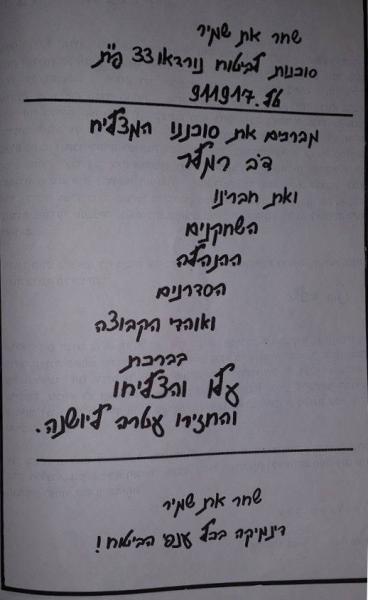 שחר את שמיר
סוכנות לביטוח נורדאו 33 פ"ת
טל. 911917
מברכים את סוכננו המצליח
דב רמלר
ואת חברינו
השחקנים
ההנהלה
הסדרנים
ואוהדי הקבוצה
בברכת
עלו והצליחו
והחזירו עטרה ליושנה.
שחר את שמיר
דינמיקה בכל ענפי הביטוח!